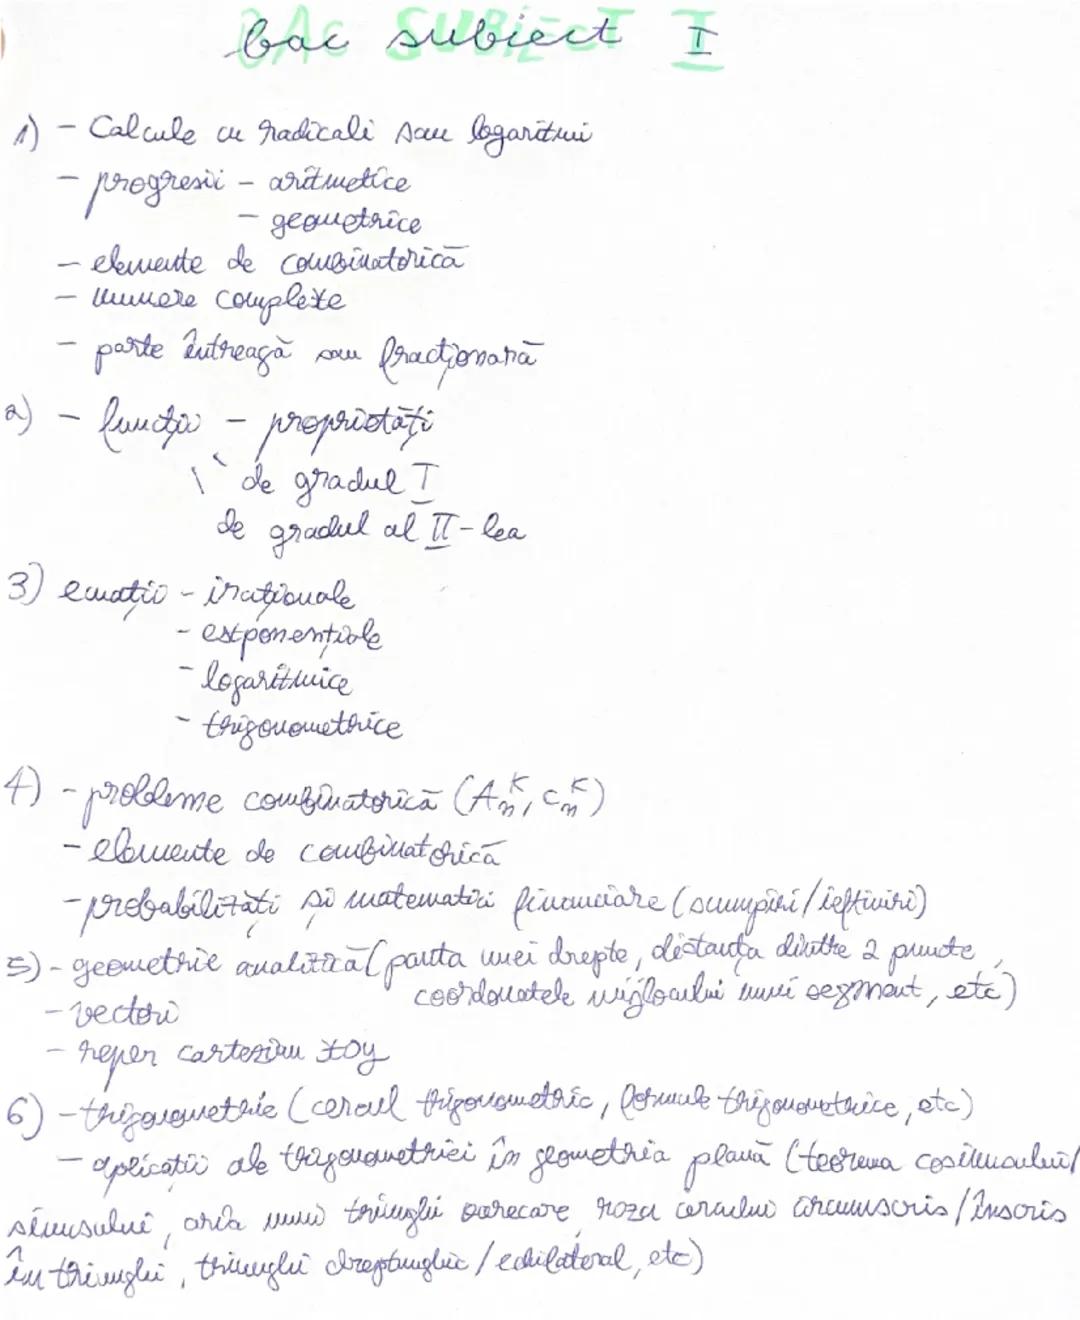 bac subiect I
1) - Calcule cu radicali sau logaritmi
- progresii - aritmetice
- geometrice
- elemente de combinatorică
- numere complexe
- parte întreagă sau fracționară
2) - funcția - proprietăți
de gradul I
de gradul al II-lea
3) ecuații - iraționale
- exponențiale
- logaritmice
- trigonometrice
4) - probleme combinatorică (A_n^k, C_n^k)
- elemente de combinatorică
- probabilități și matematici financiare (scumpiri/ieftiniri)
5) - geometrie analitică (panta unei drepte, distanța dintre 2 puncte,
coordonatele mijlocului unui segment, etc)
- vectori
- reper cartezian xoy
6) - trigonometrie (cercul trigonometric, formule trigonometrice, etc)
- aplicații ale trigonometriei în geometria plană (teorema cosinusului/
sinusului, aria unui triunghi oarecare, raza cercului circumscris/înscris
în triunghi, triunghi dreptunghic/echilateral, etc)